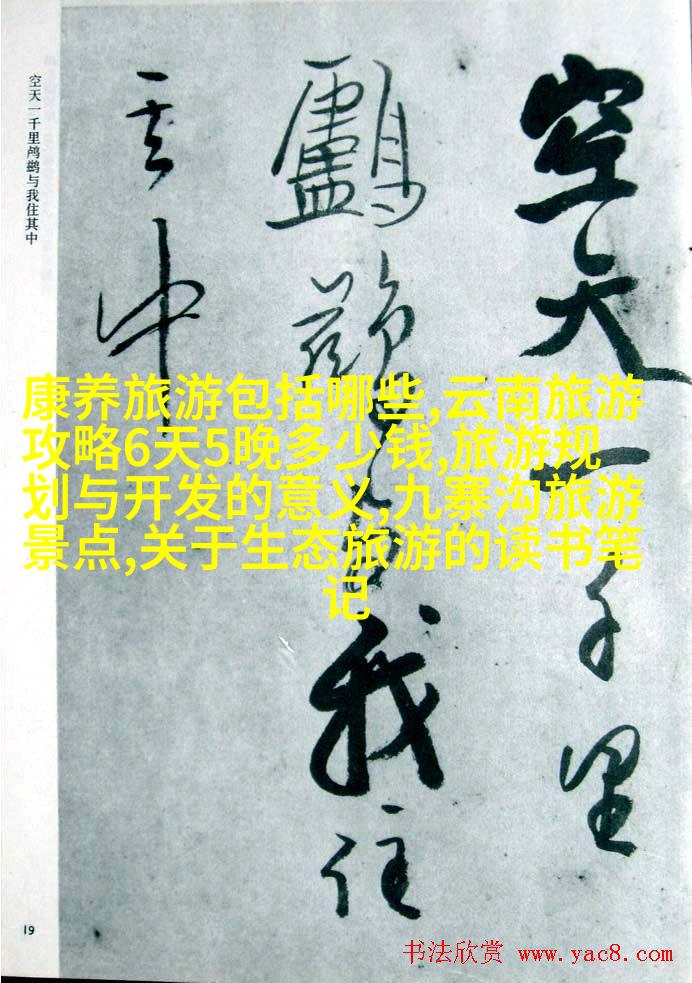 空天一千里
鸕鷀我住
其中
空天一千里鸬鹚与我住其中
康养旅游包括哪些,云南旅游
攻略6天5晚多少钱,旅游规
划与开发的意义,九寨沟旅游
景点,关于生态旅游的读书笔
记
19
书法欣赏 www.yac8.com